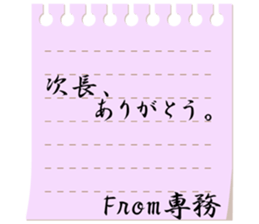 次長、
ありがとう。
From専務